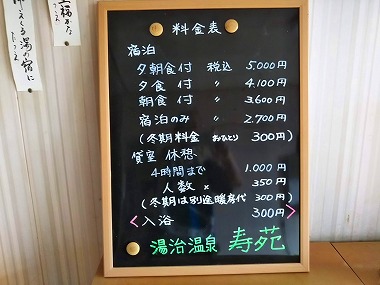 料金表
宿泊
夕朝食付 税込 5.000円
夕食付 〃 4.100円
朝食付 〃 3.600円
宿泊のみ 〃 2.700円
(冬期料金 おひとり 300円)
貸室 休憩
4時間まで 1.000円
人数 × 350円
(冬期は別途暖房代 300円)
<入浴 300円>
湯治温泉 寿苑
湯の宿に